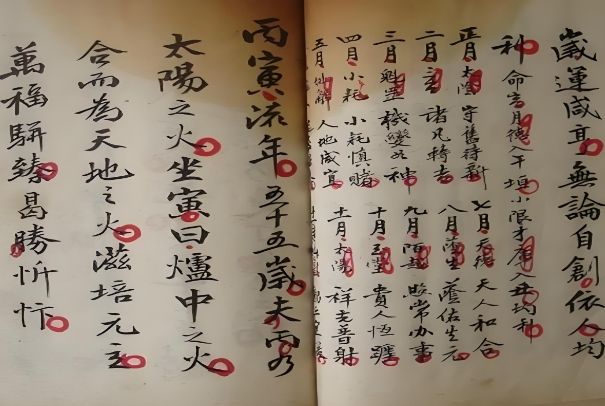 歲運咸亨無論自創依人均
利 命 月德入 垣小限才庫入丑均利
正月太陰 守舊待新 七月天德 天人和合
二月 諸凡轉吉 八月蔭生 蔭佑生元
三月魁罡 機變如神 九月陌越 照常办事
四月小耗 小耗慎賭 十月玉堂 貴人恆躔
五月 人地咸宜 十一月太陽 祥光普射
丙寅流年五十五歲夫丙乃
太陽之火坐寅曰爐中之火
合而為天地之火滋培元
萬福駢臻曷勝忻忭